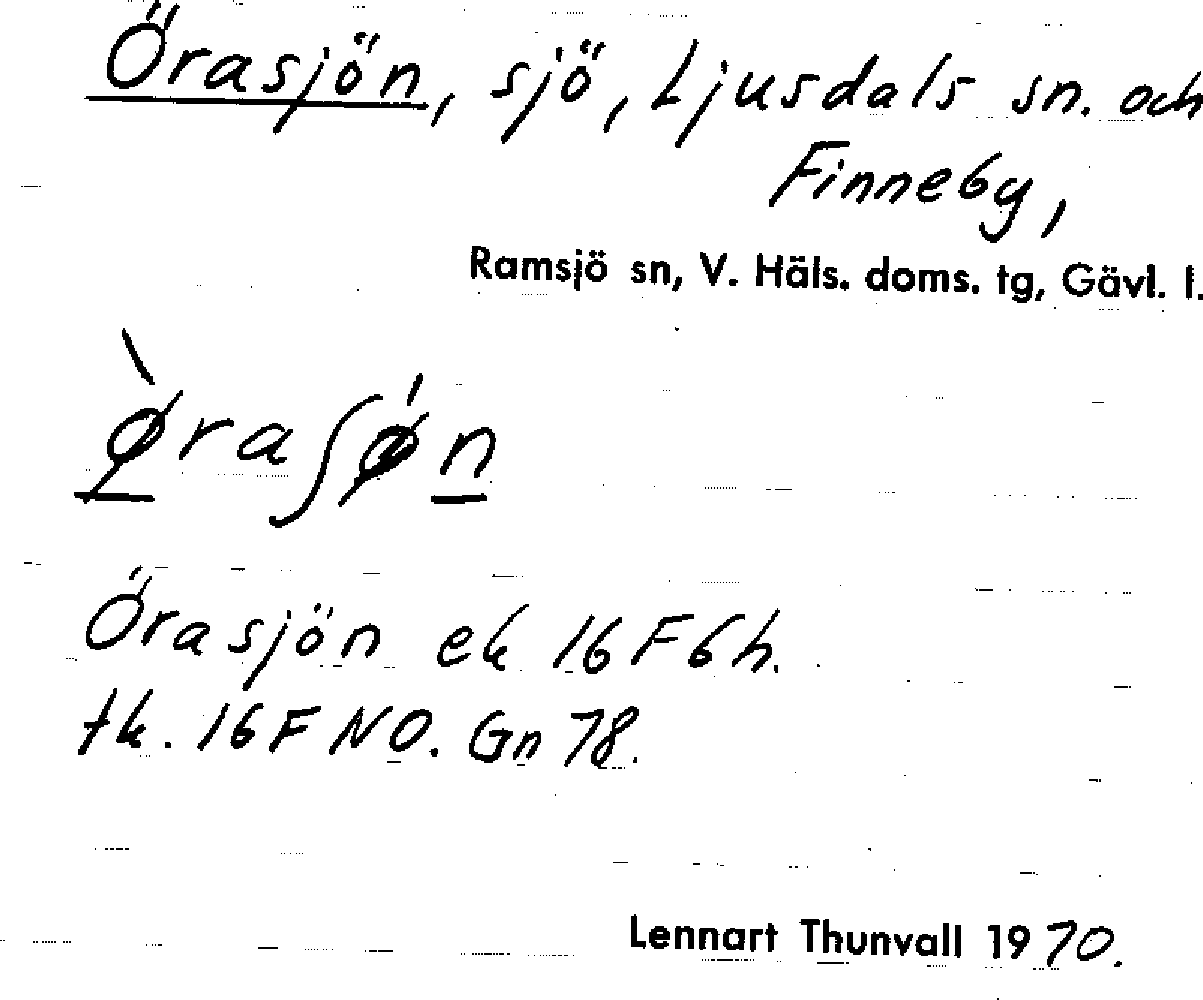 Örasjön, sjö, Ljusdals sn. och
Finneby,
Ramsjö sn, V. Häls. doms. tg, Gävl. l.
ø̀raʃǿn
Örasjön ek 16F6h.
tk. 16F NO. Gn 78.
Lennart Thunvall 1970.